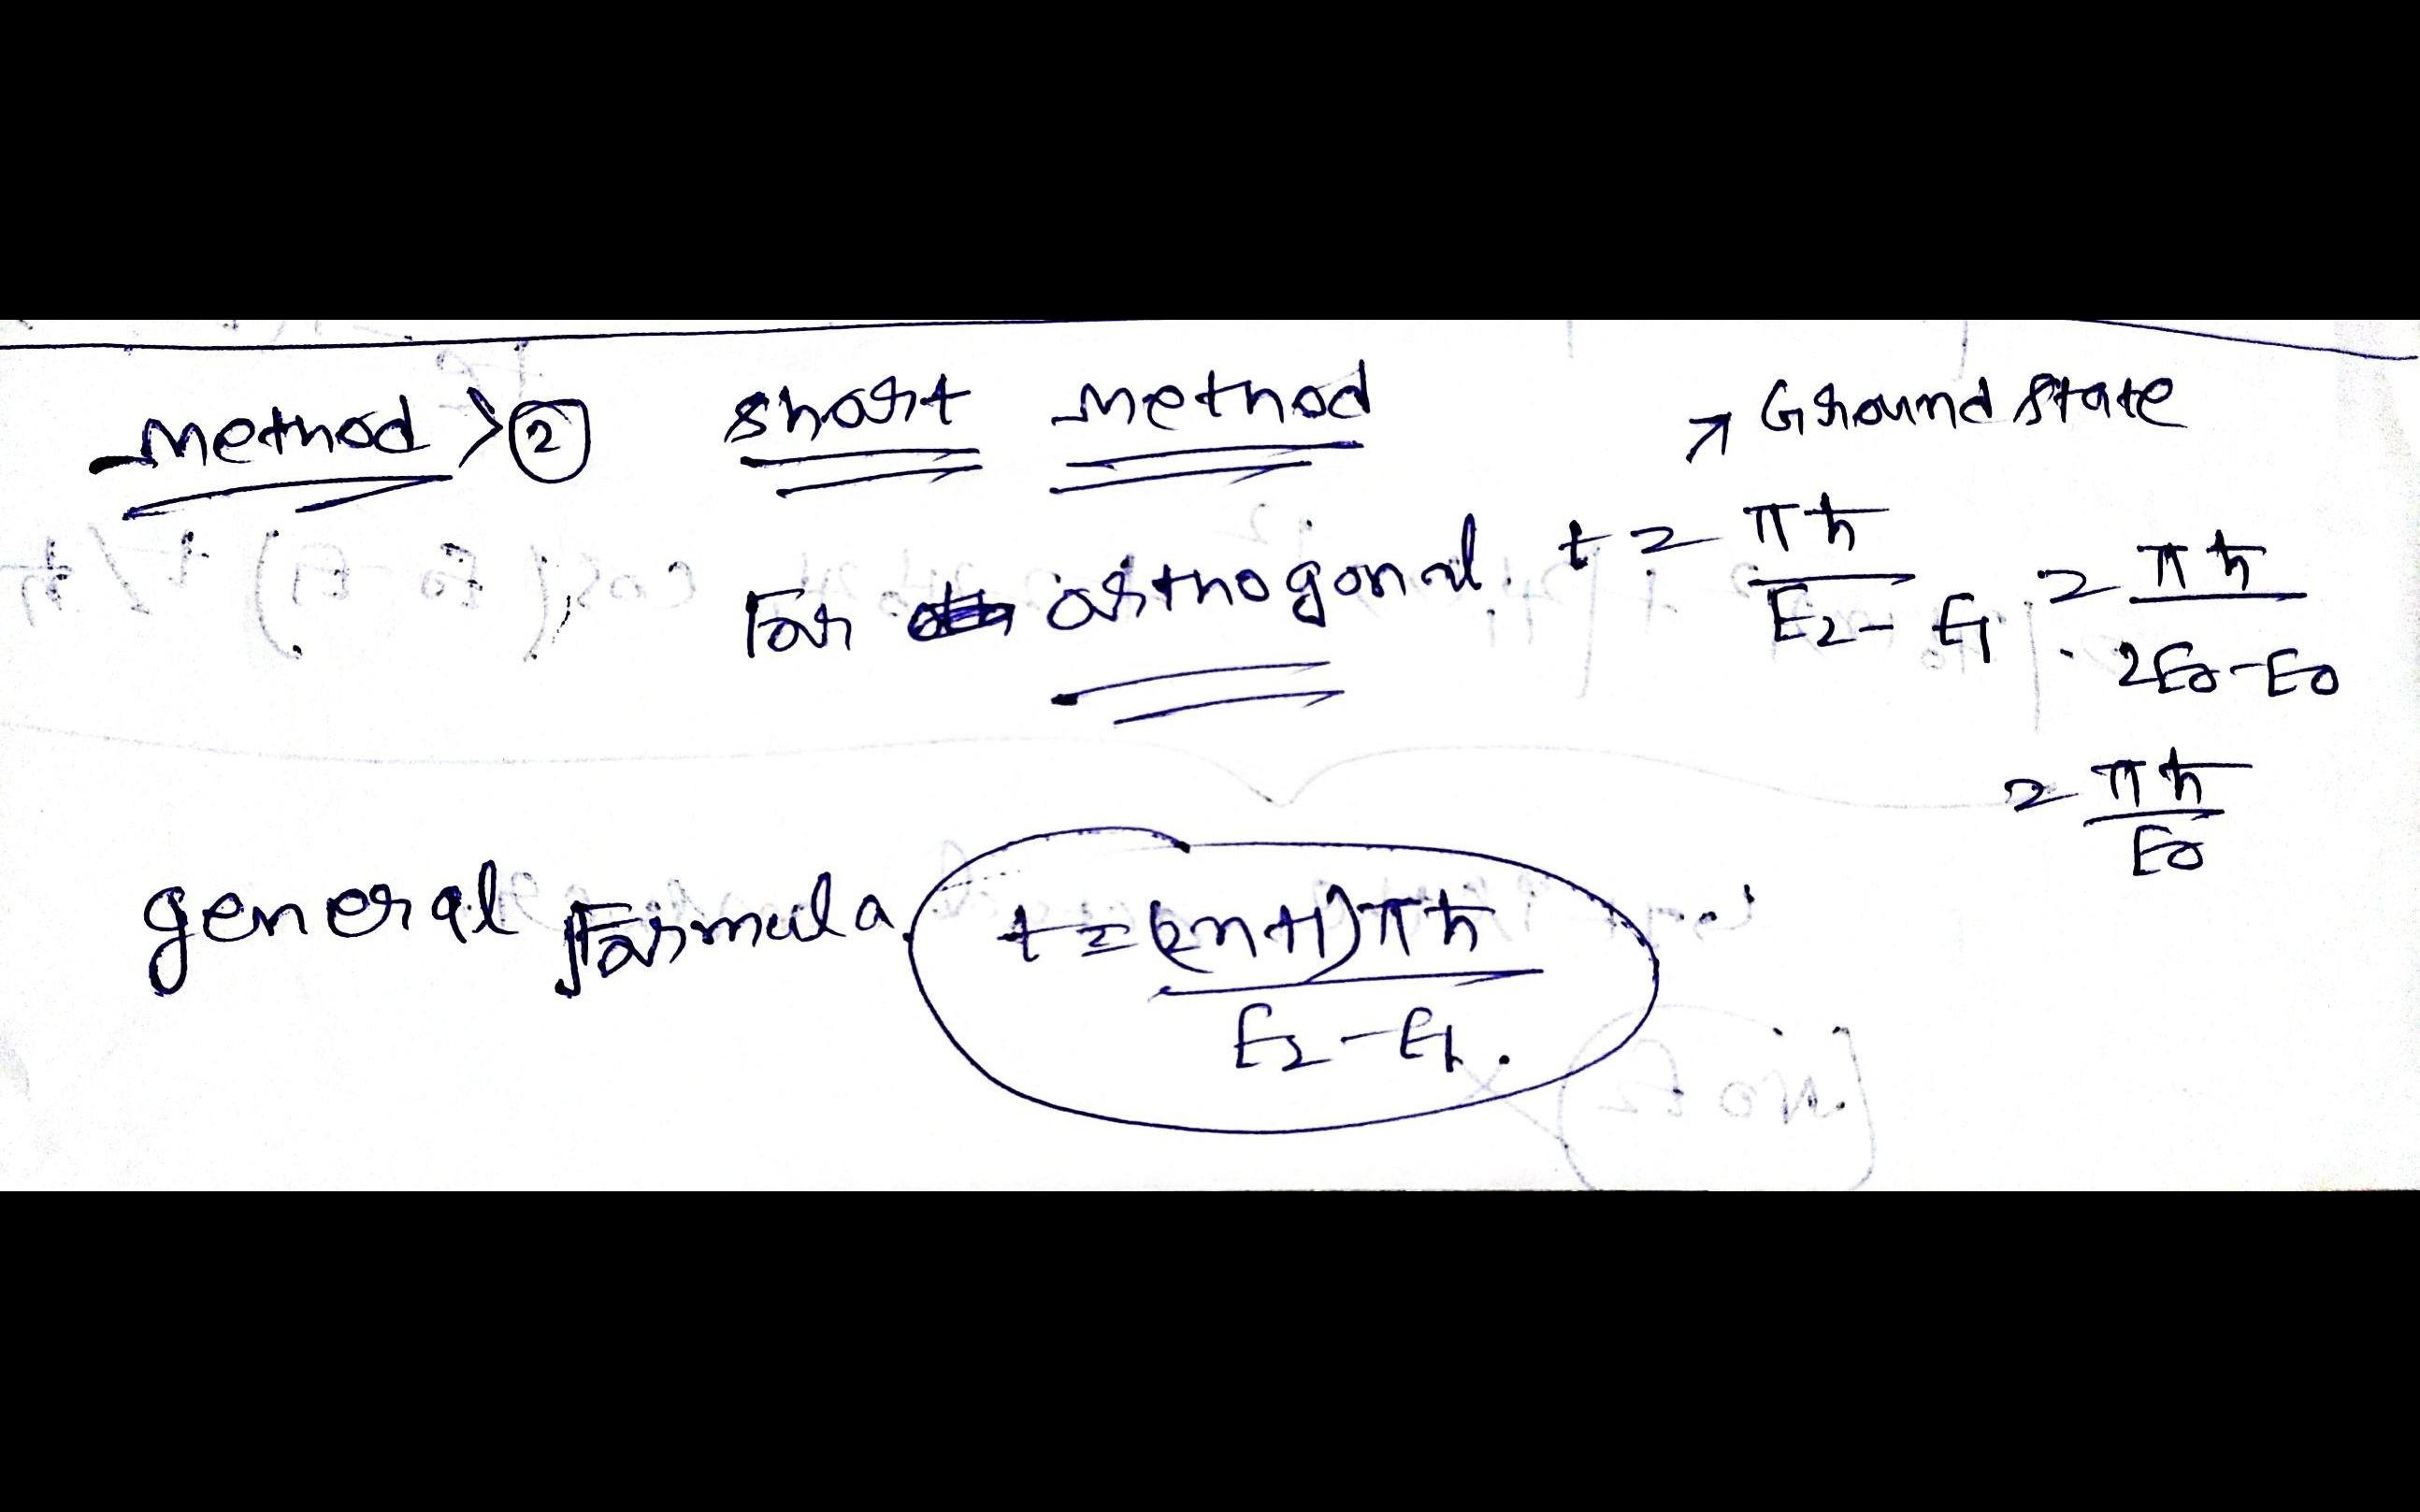 Method > ② Short Method
→ Ground State
For orthogonal. t = πħ / E2 - E1 = πħ / 2E0 - E0
= πħ / E0
general formula t = (2n+1)πħ / E2 - E1.